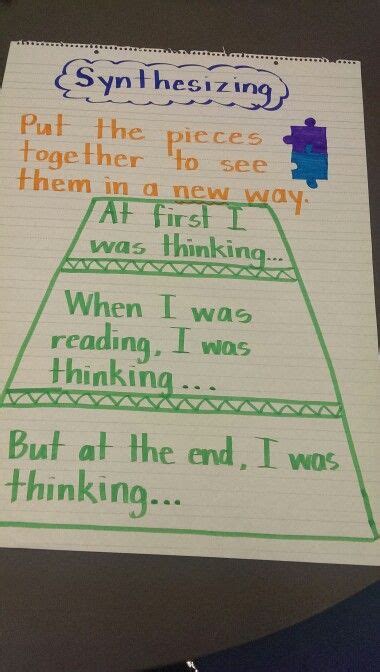 Synthesizing
Put the pieces
together to see
them in a new way.
At first I
was thinking...
When I was
reading, I was
thinking...
But at the end, I was
thinking...